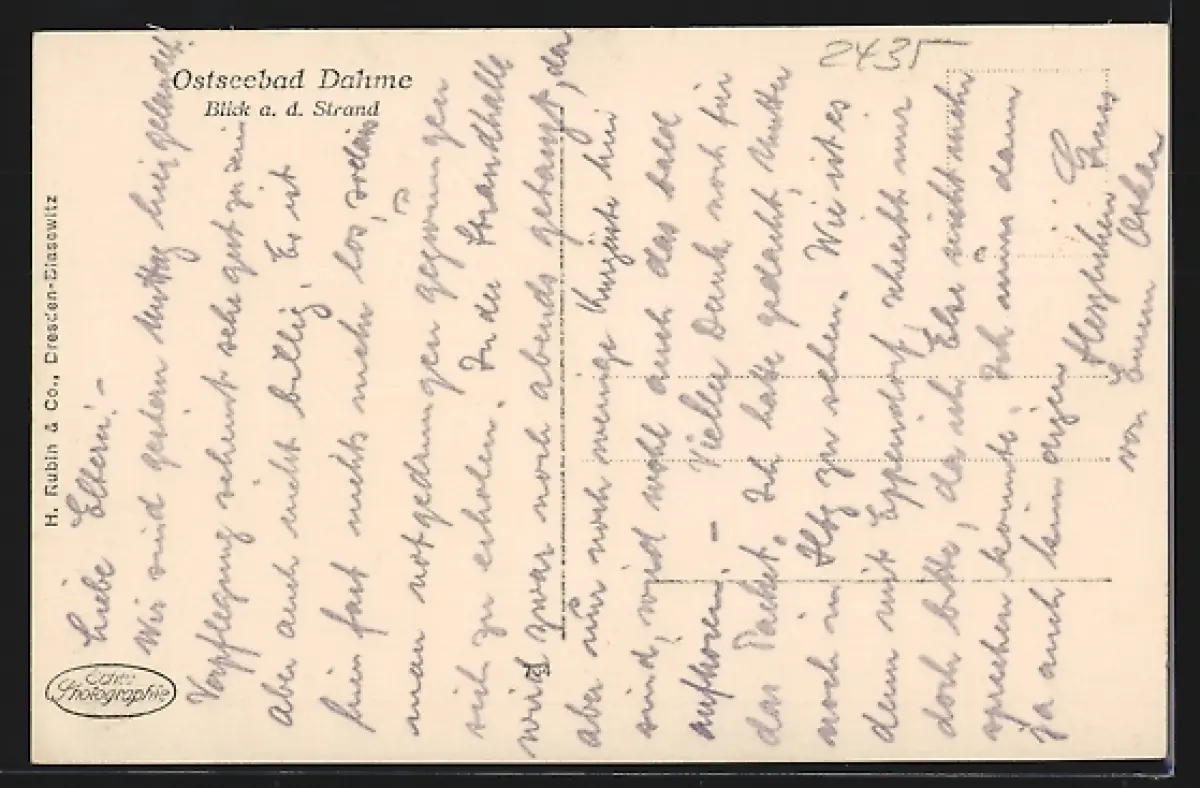 Ostseebad Dahme
Blick a. d. Strand
H. Rubin & Co., Dresden-Blasewitz
Echte
Photographie
2435
Liebe Eltern! –
Wir sind gestern Mittag hier gelandet.
Verpflegung scheint sehr gut zu sein
aber auch nicht billig. Es ist
hier fast nichts mehr los, sodass
man notgedrungen gezwungen
sich zu erholen. In der Strandhalle
wird zwar noch abends getanzt, da
aber nur noch wenige Kurgäste hier
sind, wird wohl auch das bald
aufhören. – Vielen Dank noch für
das Packet. Ich hatte gedacht, Mutter
noch in Hbg zu sehen. Wie ist es
denn mit Eppendorf, schreibt mir
doch bitte, da ich Else nicht mehr
sprechen konnte. Ich nun dann
ja auch kein Herzlichen Gruss
von Eurem